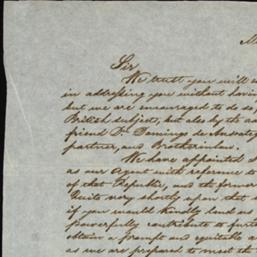 Sir
We trust you will e
in addressing you without havin
but we are encouraged to do so,
British subjects, but also by the
friend Dr Domingo de
partner, and Brotherinlaw.
We have appointed
as our Agent with reference to
of that Republic, and the former
Quito very shortly upon that
if you would kindly lend us
powerfully contribute to furt
obtain a prompt and equitable a
as we are prepared to meet the